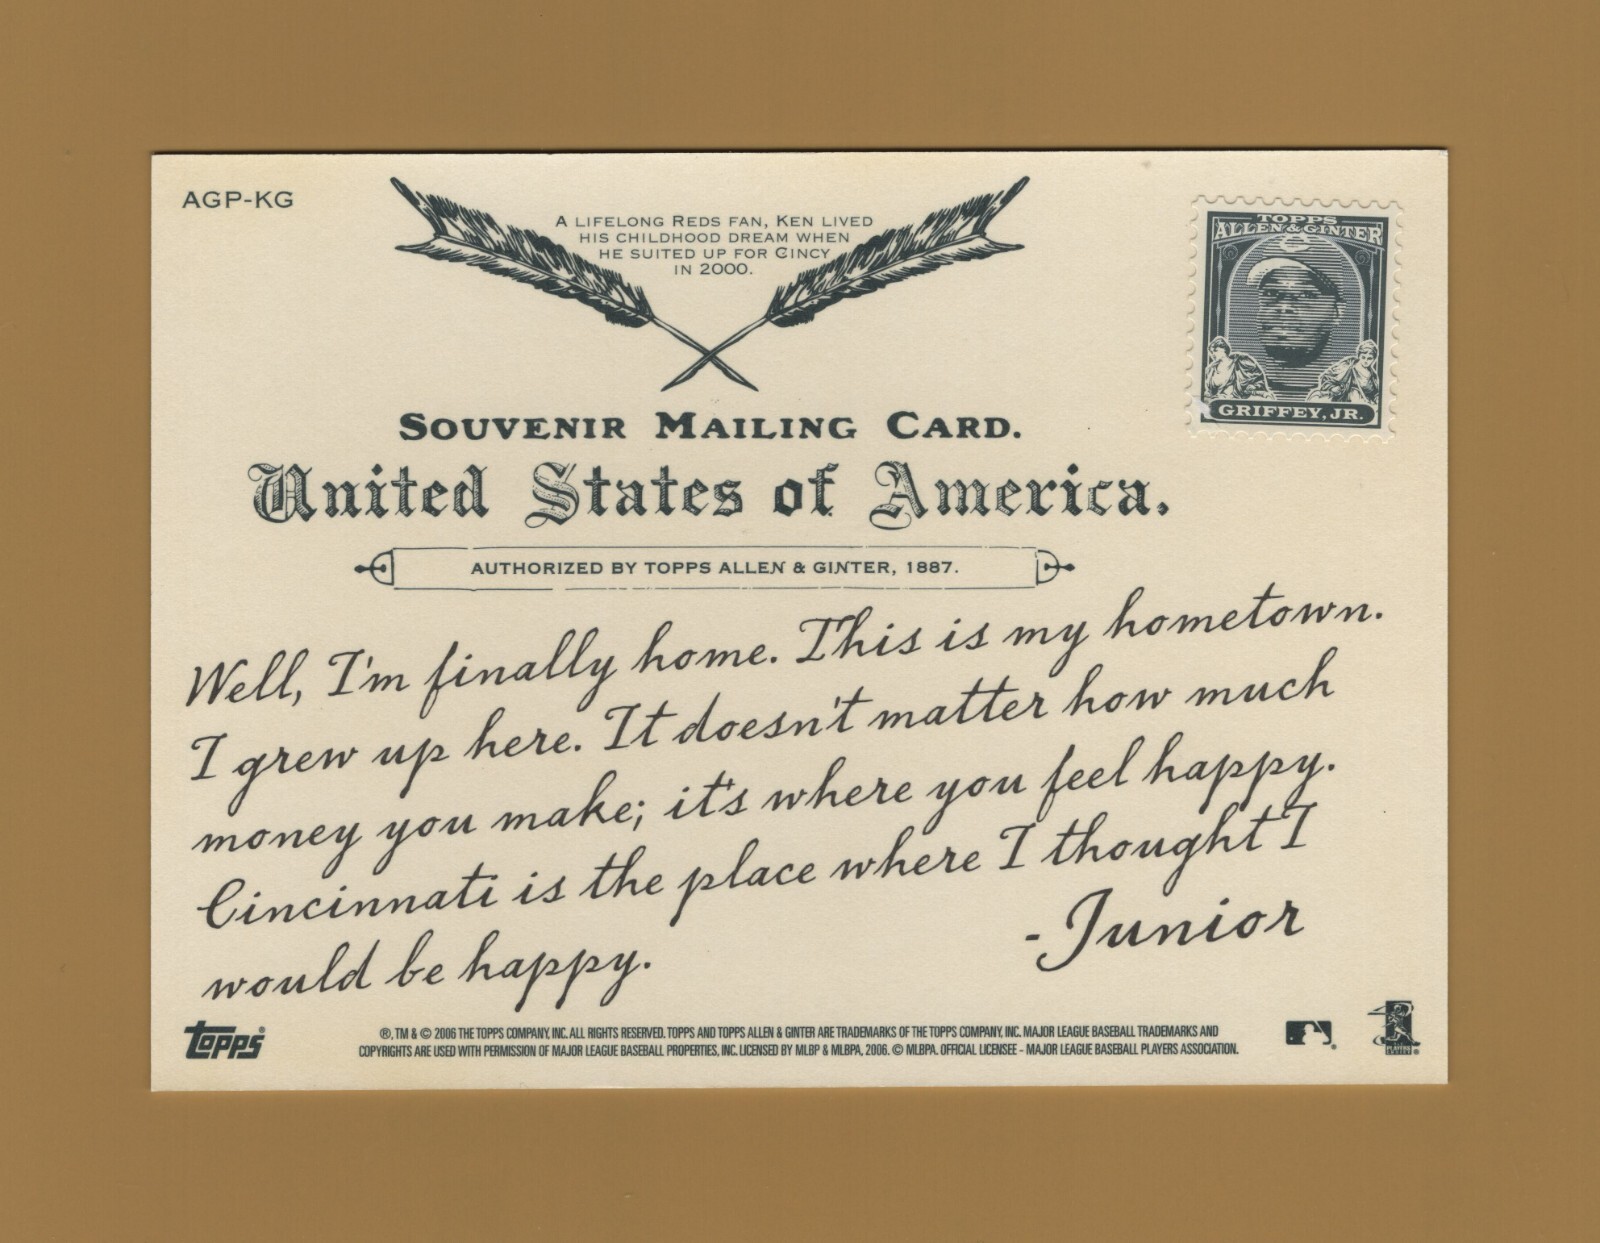 AGP-KG
A LIFELONG REDS FAN, KEN LIVED
HIS CHILDHOOD DREAM WHEN
HE SUITED UP FOR CINCY
IN 2000.
TOPPS
ALLEN & GINTER
GRIFFEY, JR.
SOUVENIR MAILING CARD.
United States of America.
AUTHORIZED BY TOPPS ALLEN & GINTER, 1887.
Well, I'm finally home. This is my hometown.
I grew up here. It doesn't matter how much
money you make; it's where you feel happy.
Cincinnati is the place where I thought I
would be happy.
-Junior
topps®
®, TM & © 2006 THE TOPPS COMPANY, INC. ALL RIGHTS RESERVED. TOPPS AND TOPPS ALLEN & GINTER ARE TRADEMARKS OF THE TOPPS COMPANY, INC. MAJOR LEAGUE BASEBALL TRADEMARKS AND
COPYRIGHTS ARE USED WITH PERMISSION OF MAJOR LEAGUE BASEBALL PROPERTIES, INC. LICENSED BY MLBP & MLBPA, 2006. © MLBPA. OFFICIAL LICENSEE - MAJOR LEAGUE BASEBALL PLAYERS ASSOCIATION.